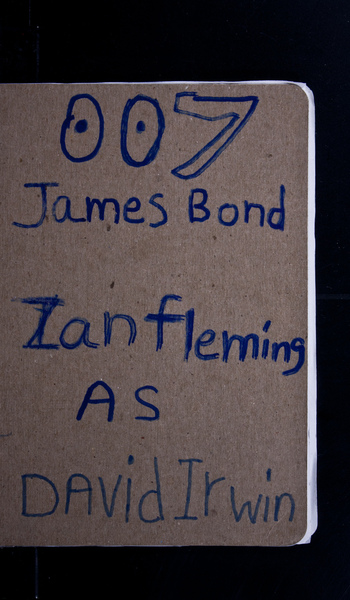 007
James Bond
Ian fleming
AS
DAViD Irwin